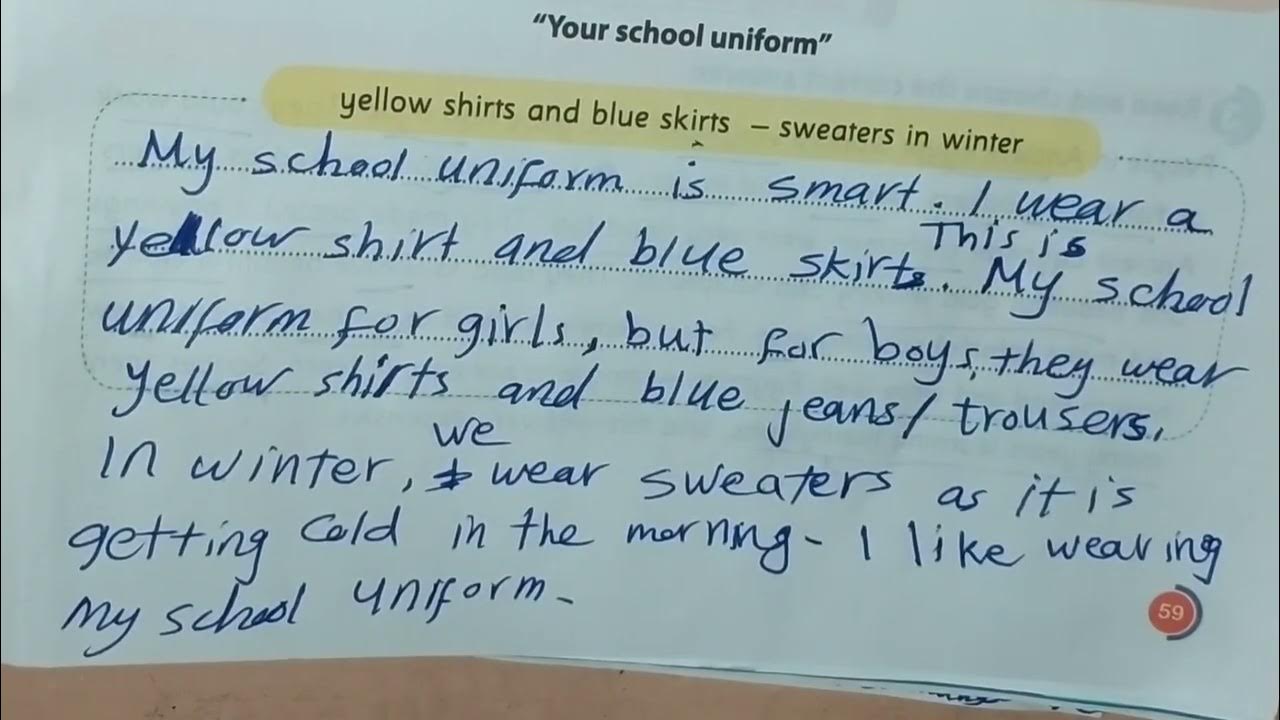 "Your school uniform"
yellow shirts and blue skirts – sweaters in winter
My school uniform is smart. I wear a
yellow shirt and blue skirts. This is My school
uniform for girls, but for boys, they wear
yellow shirts and blue jeans/ trousers.
In winter, we wear sweaters as it is
getting cold in the morning- I like wearing
my school uniform-
59